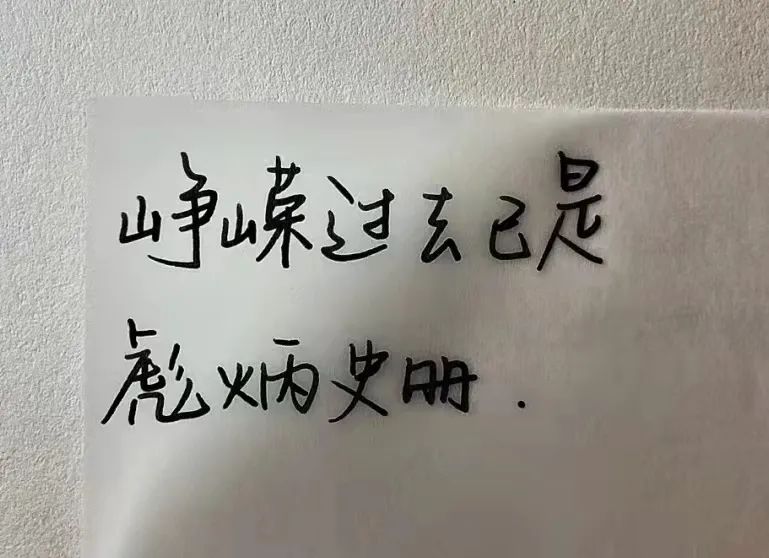 峥嵘过去已是
彪炳史册.